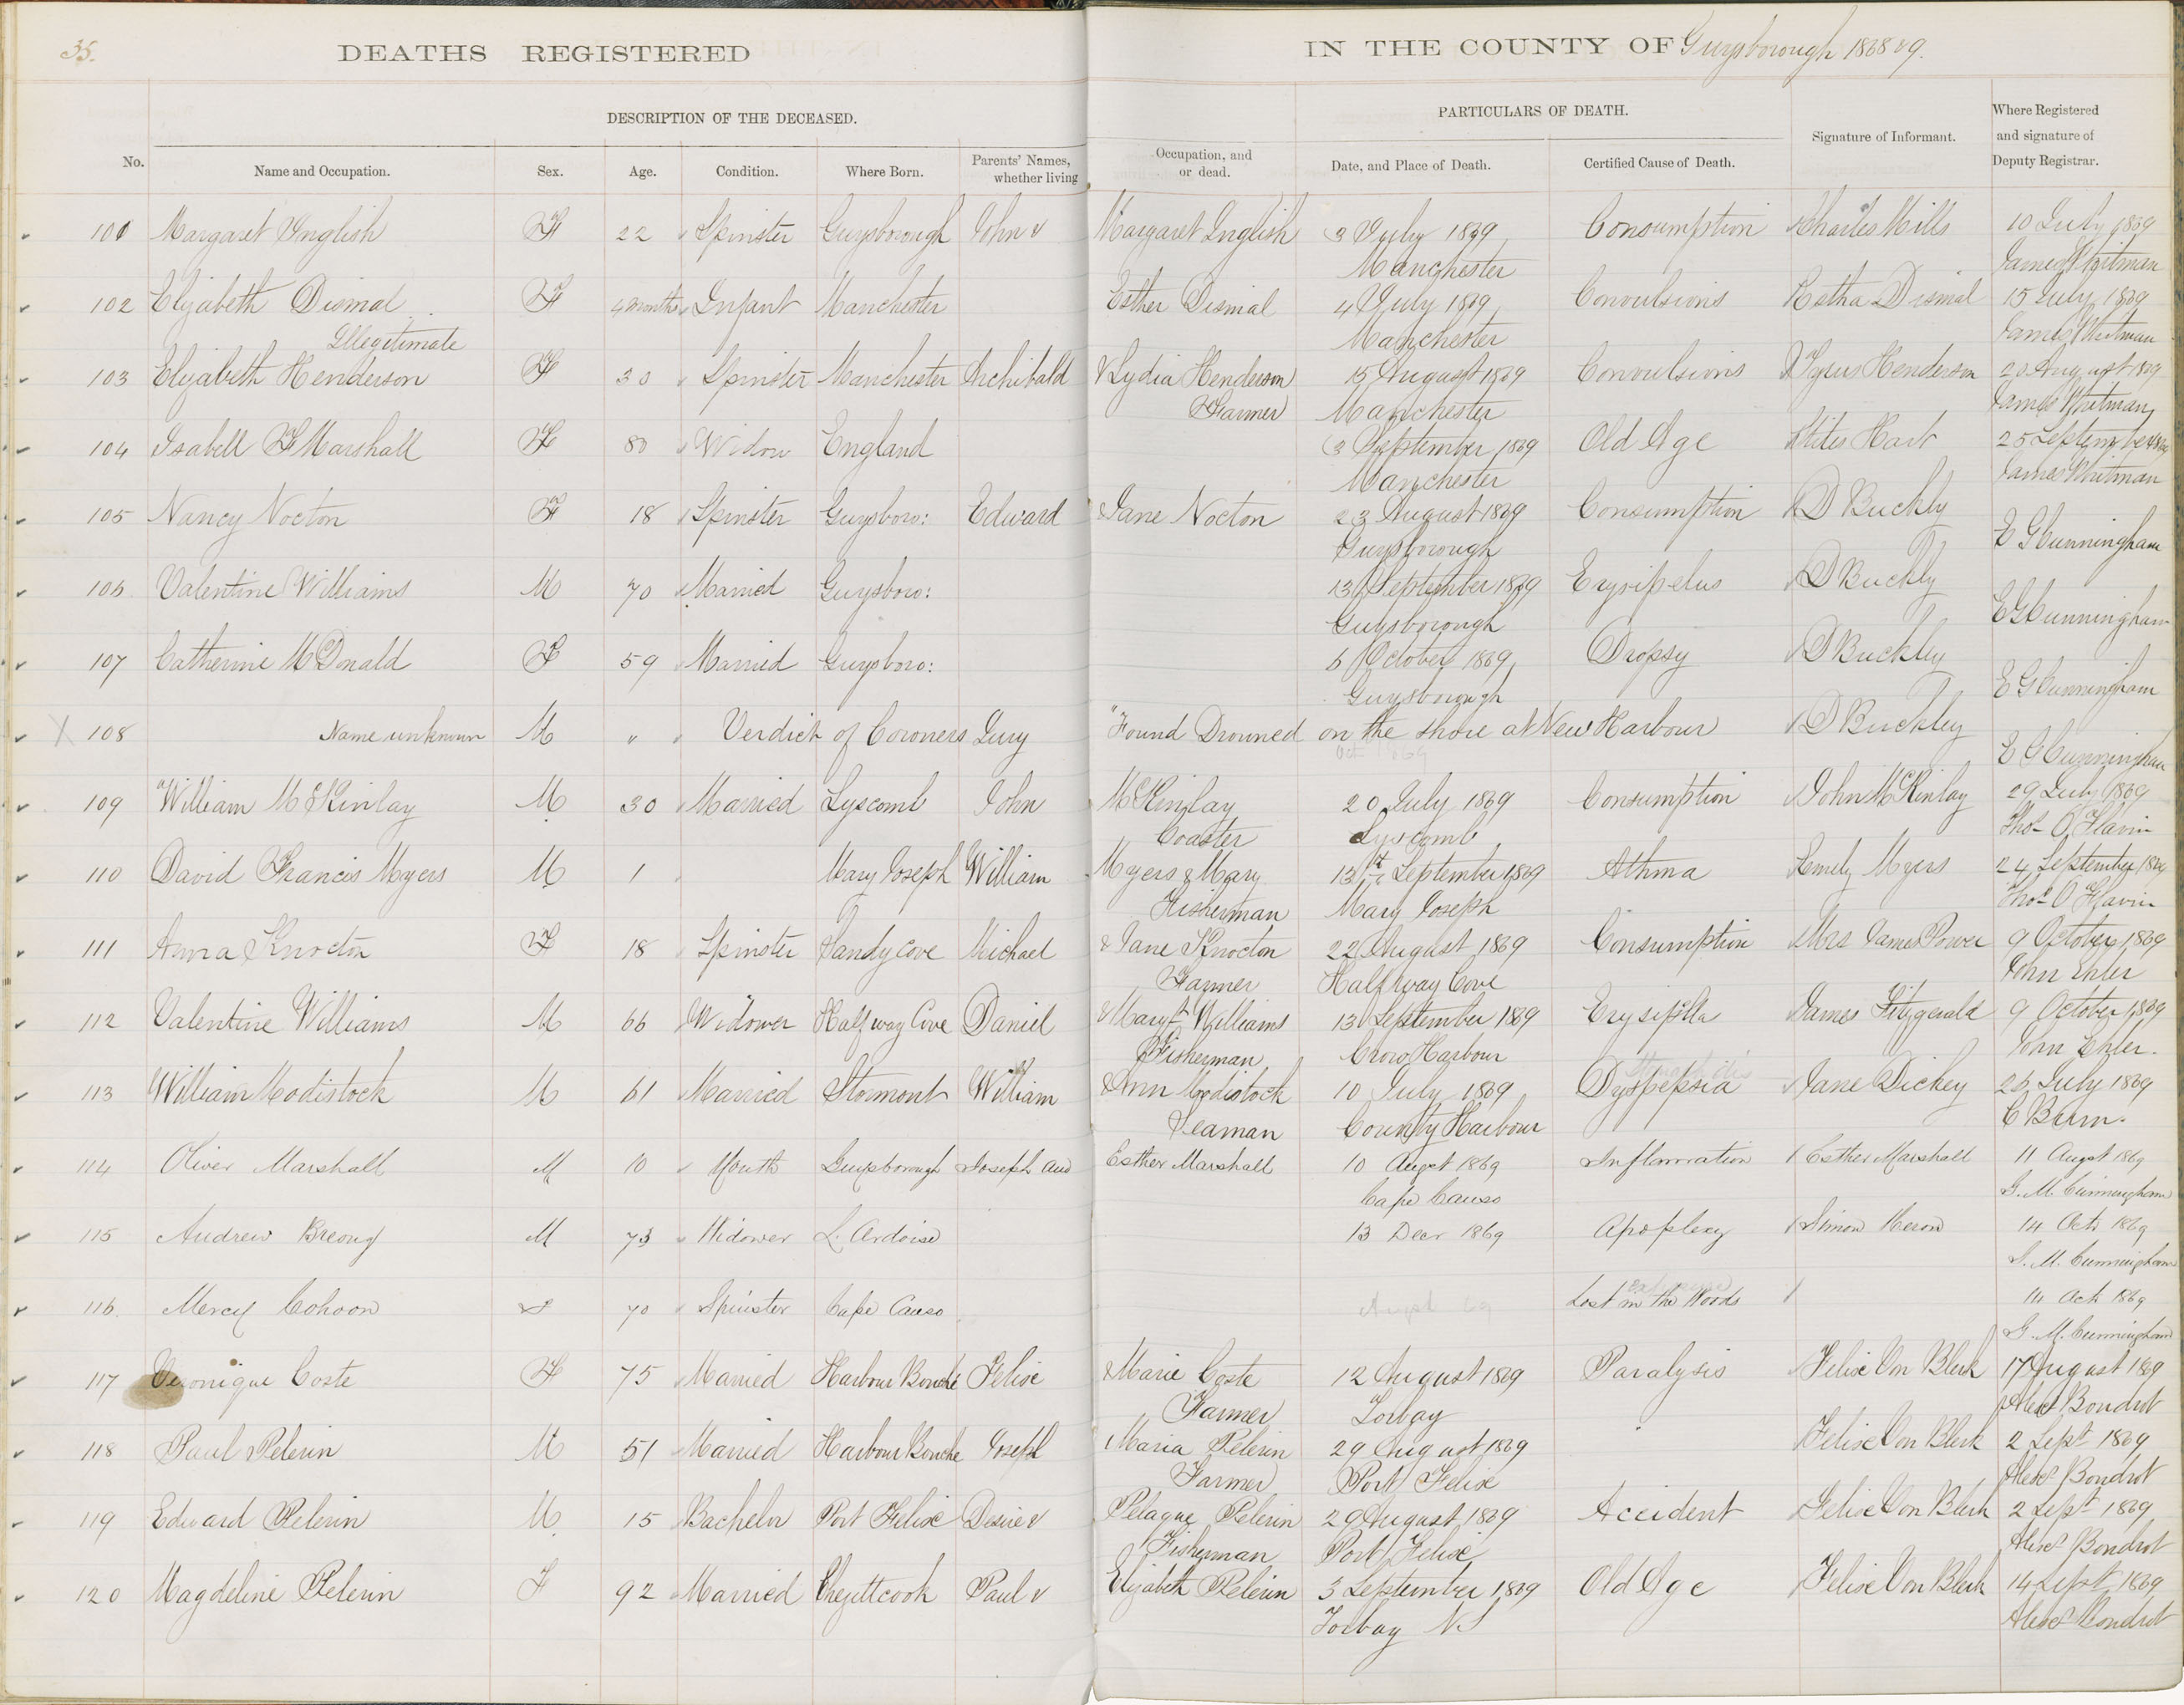 35.
DEATHS REGISTERED IN THE COUNTY OF Guysborough 1868 & 9.
DESCRIPTION OF THE DECEASED. PARTICULARS OF DEATH.
No. Name and Occupation. Sex. Age. Condition. Where Born. Parents' Names, whether living Occupation, and or dead. Date, and Place of Death. Certified Cause of Death. Signature of Informant. Where Registered and signature of Deputy Registrar.
101 Margaret English F 22 Spinster Guysborough John & Margaret English 3 July 1869 Consumption Charles Mills 10 July 1869
Manchester James Whitman
102 Elizabeth Dismal F 4 months Infant Manchester Esther Dismal 4 July 1869 Convulsions Estha Dismal 15 July 1869
Illegitimate Manchester James Whitman
103 Elizabeth Henderson F 30 Spinster Manchester Archibald & Lydia Henderson 15 August 1869 Convulsions Henderson 20 August 1869
Farmer Manchester James Whitman
104 Isabell F Marshall F 80 Widow England 3 September 1869 Old Age Stiles Hart 25 September 1869
Manchester James Whitman
105 Nancy Nocton F 18 Spinster Guysboro: Edward & Jane Nocton 23 August 1869 Consumption D Buckly
Guysborough E G Cunningham
106 Valentine Williams M 70 Married Guysboro: 13 September 1869 Erysipelus D Buckly
Guysborough E G Cunningham
107 Catherine McDonald F 59 Married Guysboro: 6 October 1869 Dropsy D Buckley
Guysborough E G Cunningham
X 108 Name unknown M " " Verdict of Coroners Jury "Found Drowned on the shore at New Harbour D Buckley
Oct 1869 E G Cunningham
109 "William McKinlay M 30 Married Lyscomb John McKinlay 20 July 1869 Consumption John McKinlay 29 July 1869
Coaster Lyscomb Thos O Flavin
110 David Francis Myers M 1 Mary Joseph William Myers & Mary 13 September 1869 Athma Emely Myers 24 September 1869
Fisherman Mary Joseph Thos O Flavin
111 Anna Knocton F 18 Spinster Sandy Cove Michael & Jane Knocton 22 August 1869 Consumption Mrs James Power 9 October 1869
Farmer Half way Cove John Ehler
112 Valentine Williams M 66 Widower Half way Cove Daniel & Mary Williams 13 September 1869 Erysiplla James Fitzgerald 9 October 1869
Fisherman Crow Harbour John Ehler.
113 William Modistock M 61 Married Stormont William & Ann Modistock 10 July 1869 Dyspepsia Jane Dickey 26 July 1869
Seaman Country Harbour
114 Oliver Marshall M 10 Youth Guysborough Joseph and Esther Marshall 10 Augst 1869 Inflamation Esther Marshall 11 Augst 1869
Cape Canso G. M. Cunningham
115 Andrew Breong M 73 Widower L. Ardoise 13 Decr 1869 Apoplexy Simon Heron 14 Oct 1869
G. M. Cunningham
116. Mercy Cohoon F 70 Spinster Cape Canso Augst 69 Lost in the Woods 14 Oct 1869
G. M. Cunningham
117 Veronique Coste F 75 Married Harbour Bouché Felixe & Marie Coste 12 August 1869 Paralysis Felix Von Blerk 17 August 1869
Farmer Torbay Alexr Bondrot
118 Paul Pelerin M 51 Married Harbour Bouche Joseph Maria Pelerin 29 August 1869 Felix Von Blerk 2 Sept 1869
Farmer Port Felix Alexr Bondrot
119 Edward Pelerin M 15 Bachelor Port Felix Desire & Pelague Pelerin 29 August 1869 Accident Felix Von Blerk 2 Sept 1869
Fisherman Port Felix Alexr Bondrot
120 Magdeline Pelerin F 92 Married Chezettcook Paul & Elizabeth Pelerin 3 September 1869 Old Age Felix Von Blerk 14 Sept 1869
Torbay NS Alexr Bondrot